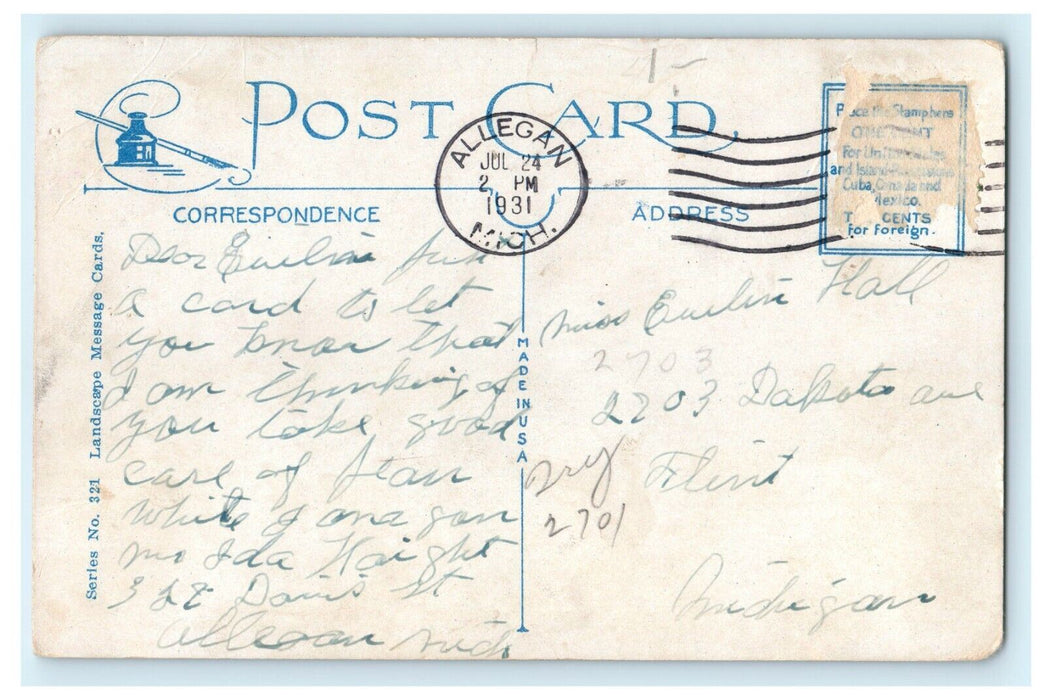 POST CARD.
1-
ALLEGAN
JUL 24
2 PM
1931
MICH.
Place the Stamp here
ONE CENT
For United States
and Island Possessions
Cuba, Canada and
Mexico.
TWO CENTS
for Foreign.
CORRESPONDENCE
ADDRESS
Series No. 321 Landscape Message Cards.
MADE IN USA
Dear Euelin just
a card to let
you know that
I am thinking of
you take good
care of Jean
while I am gon
Mrs Ida Haight
328 Davis St
Allegan Mich
Miss Euelin Hall
2703
2703 Dakota ave
Try Flint
2701
Michigan